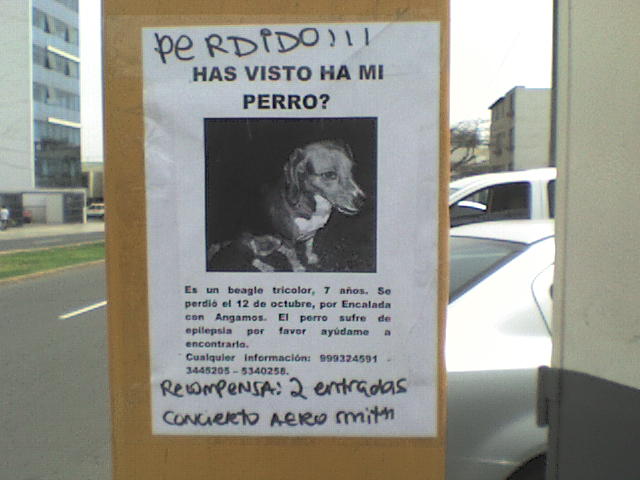 PERDIDO!!!
HAS VISTO HA MI
PERRO?
Es un beagle tricolor, 7 años. Se
perdió el 12 de octubre, por Encalada
con Angamos. El perro sufre de
epilepsia por favor ayúdame a
encontrarlo.
Cualquier información: 999324591 -
3445205 - 5340258.
RECOMPENSA: 2 entradas
CONCIERTO AEROSMITH